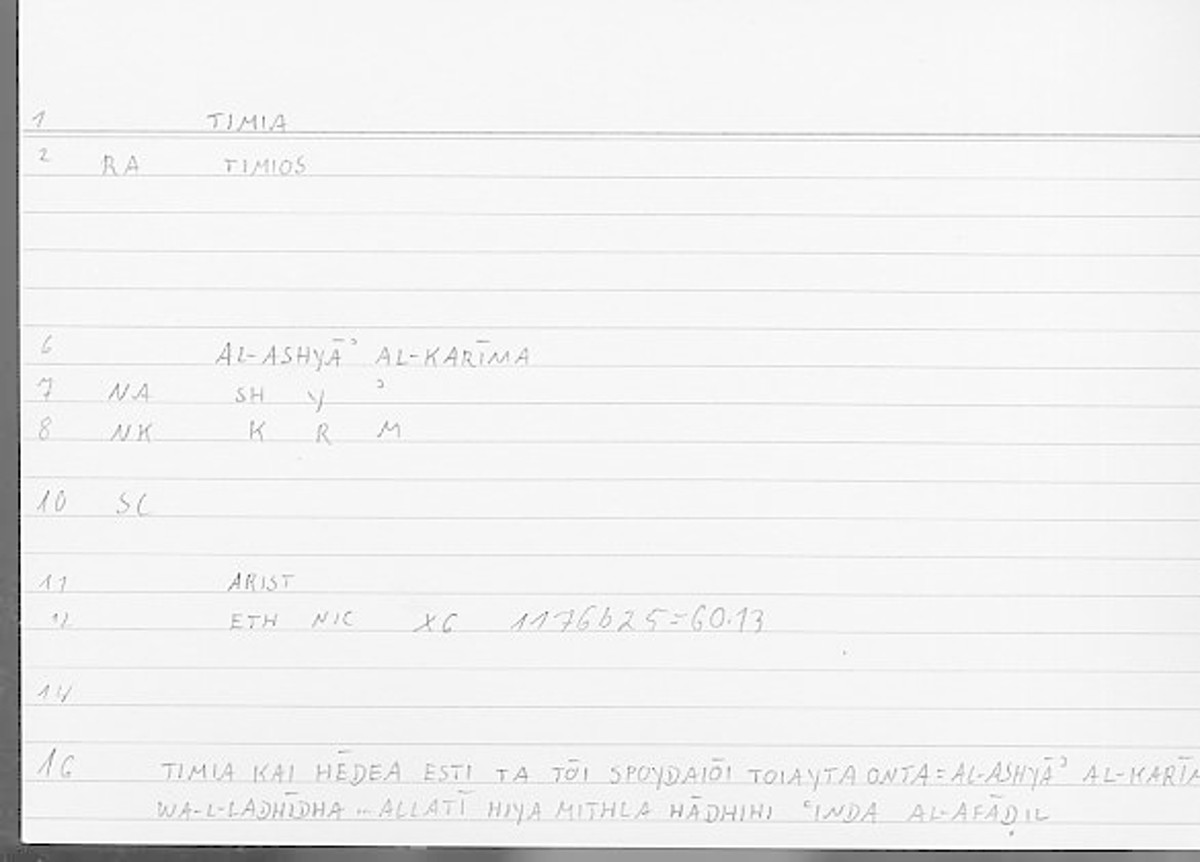 1 TIMIA
2 RA TIMIOS
6 AL-ASHYĀʾ AL-KARĪMA
7 NA SH Y ʾ
8 NK K R M
10 SC
11 ARIST
12 ETH NIC X6 1176b25=60.13
14
16 TIMIA KAI HĒDEA ESTI TA TŌI SPOYDAIŌI TOIAYTA ONTA=AL-ASHYĀʾ AL-KARĪMA
WA-L-LADHĪDHA ... ALLATĪ HIYA MITHLA HĀDHIHI ʿINDA AL-AFĀḌIL